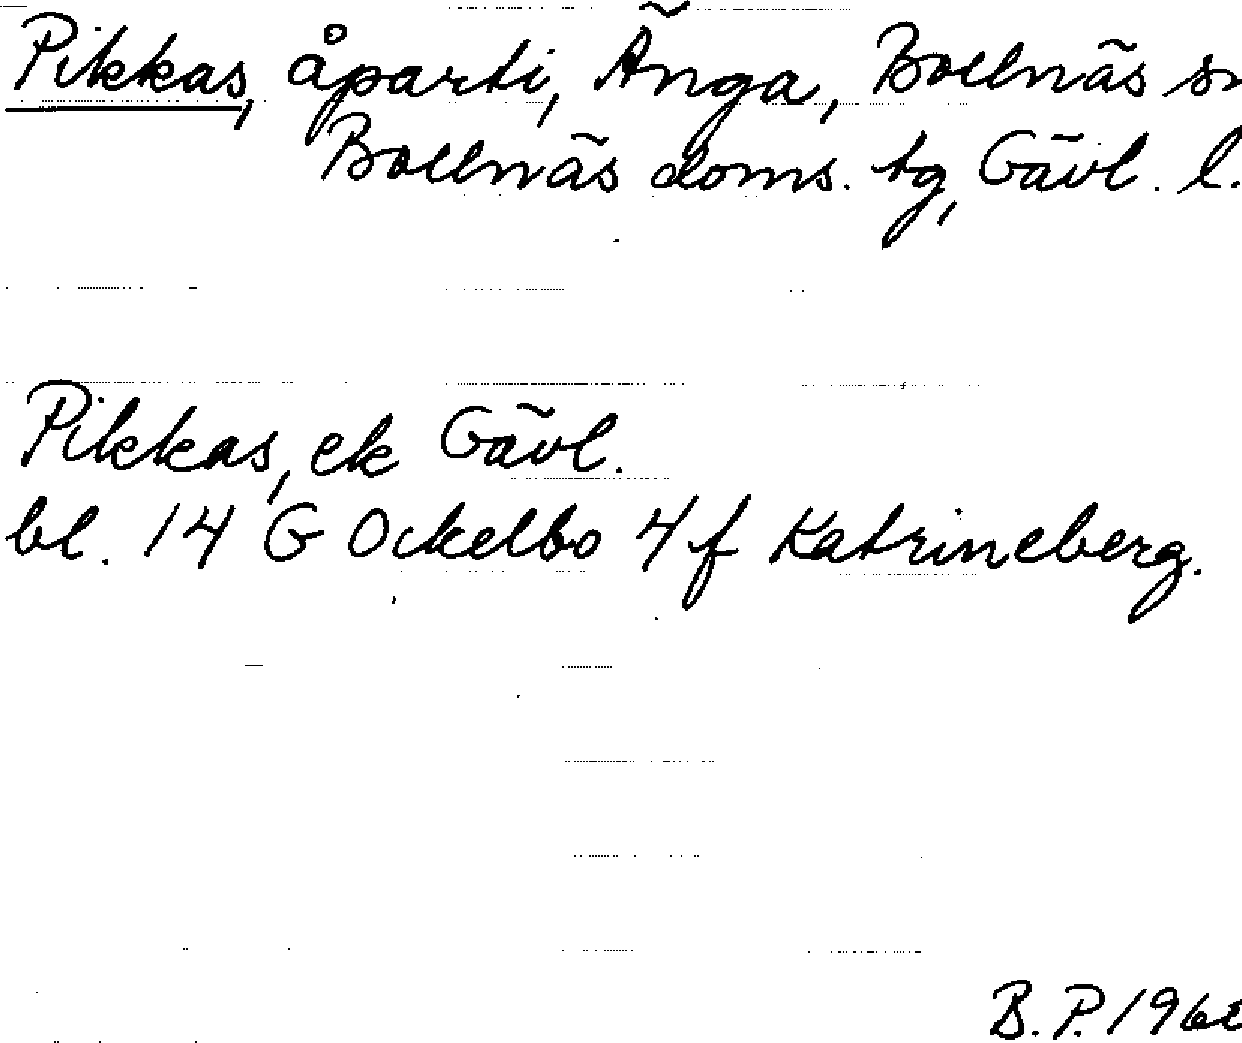 Pikkas, åparti, Änga, Bollnäs sn
Bollnäs doms. tg, Gävl. l.
Pikkas, ek Gävl.
bl. 14 G Ockelbo 4 f Katrineberg.
B. P. 1962